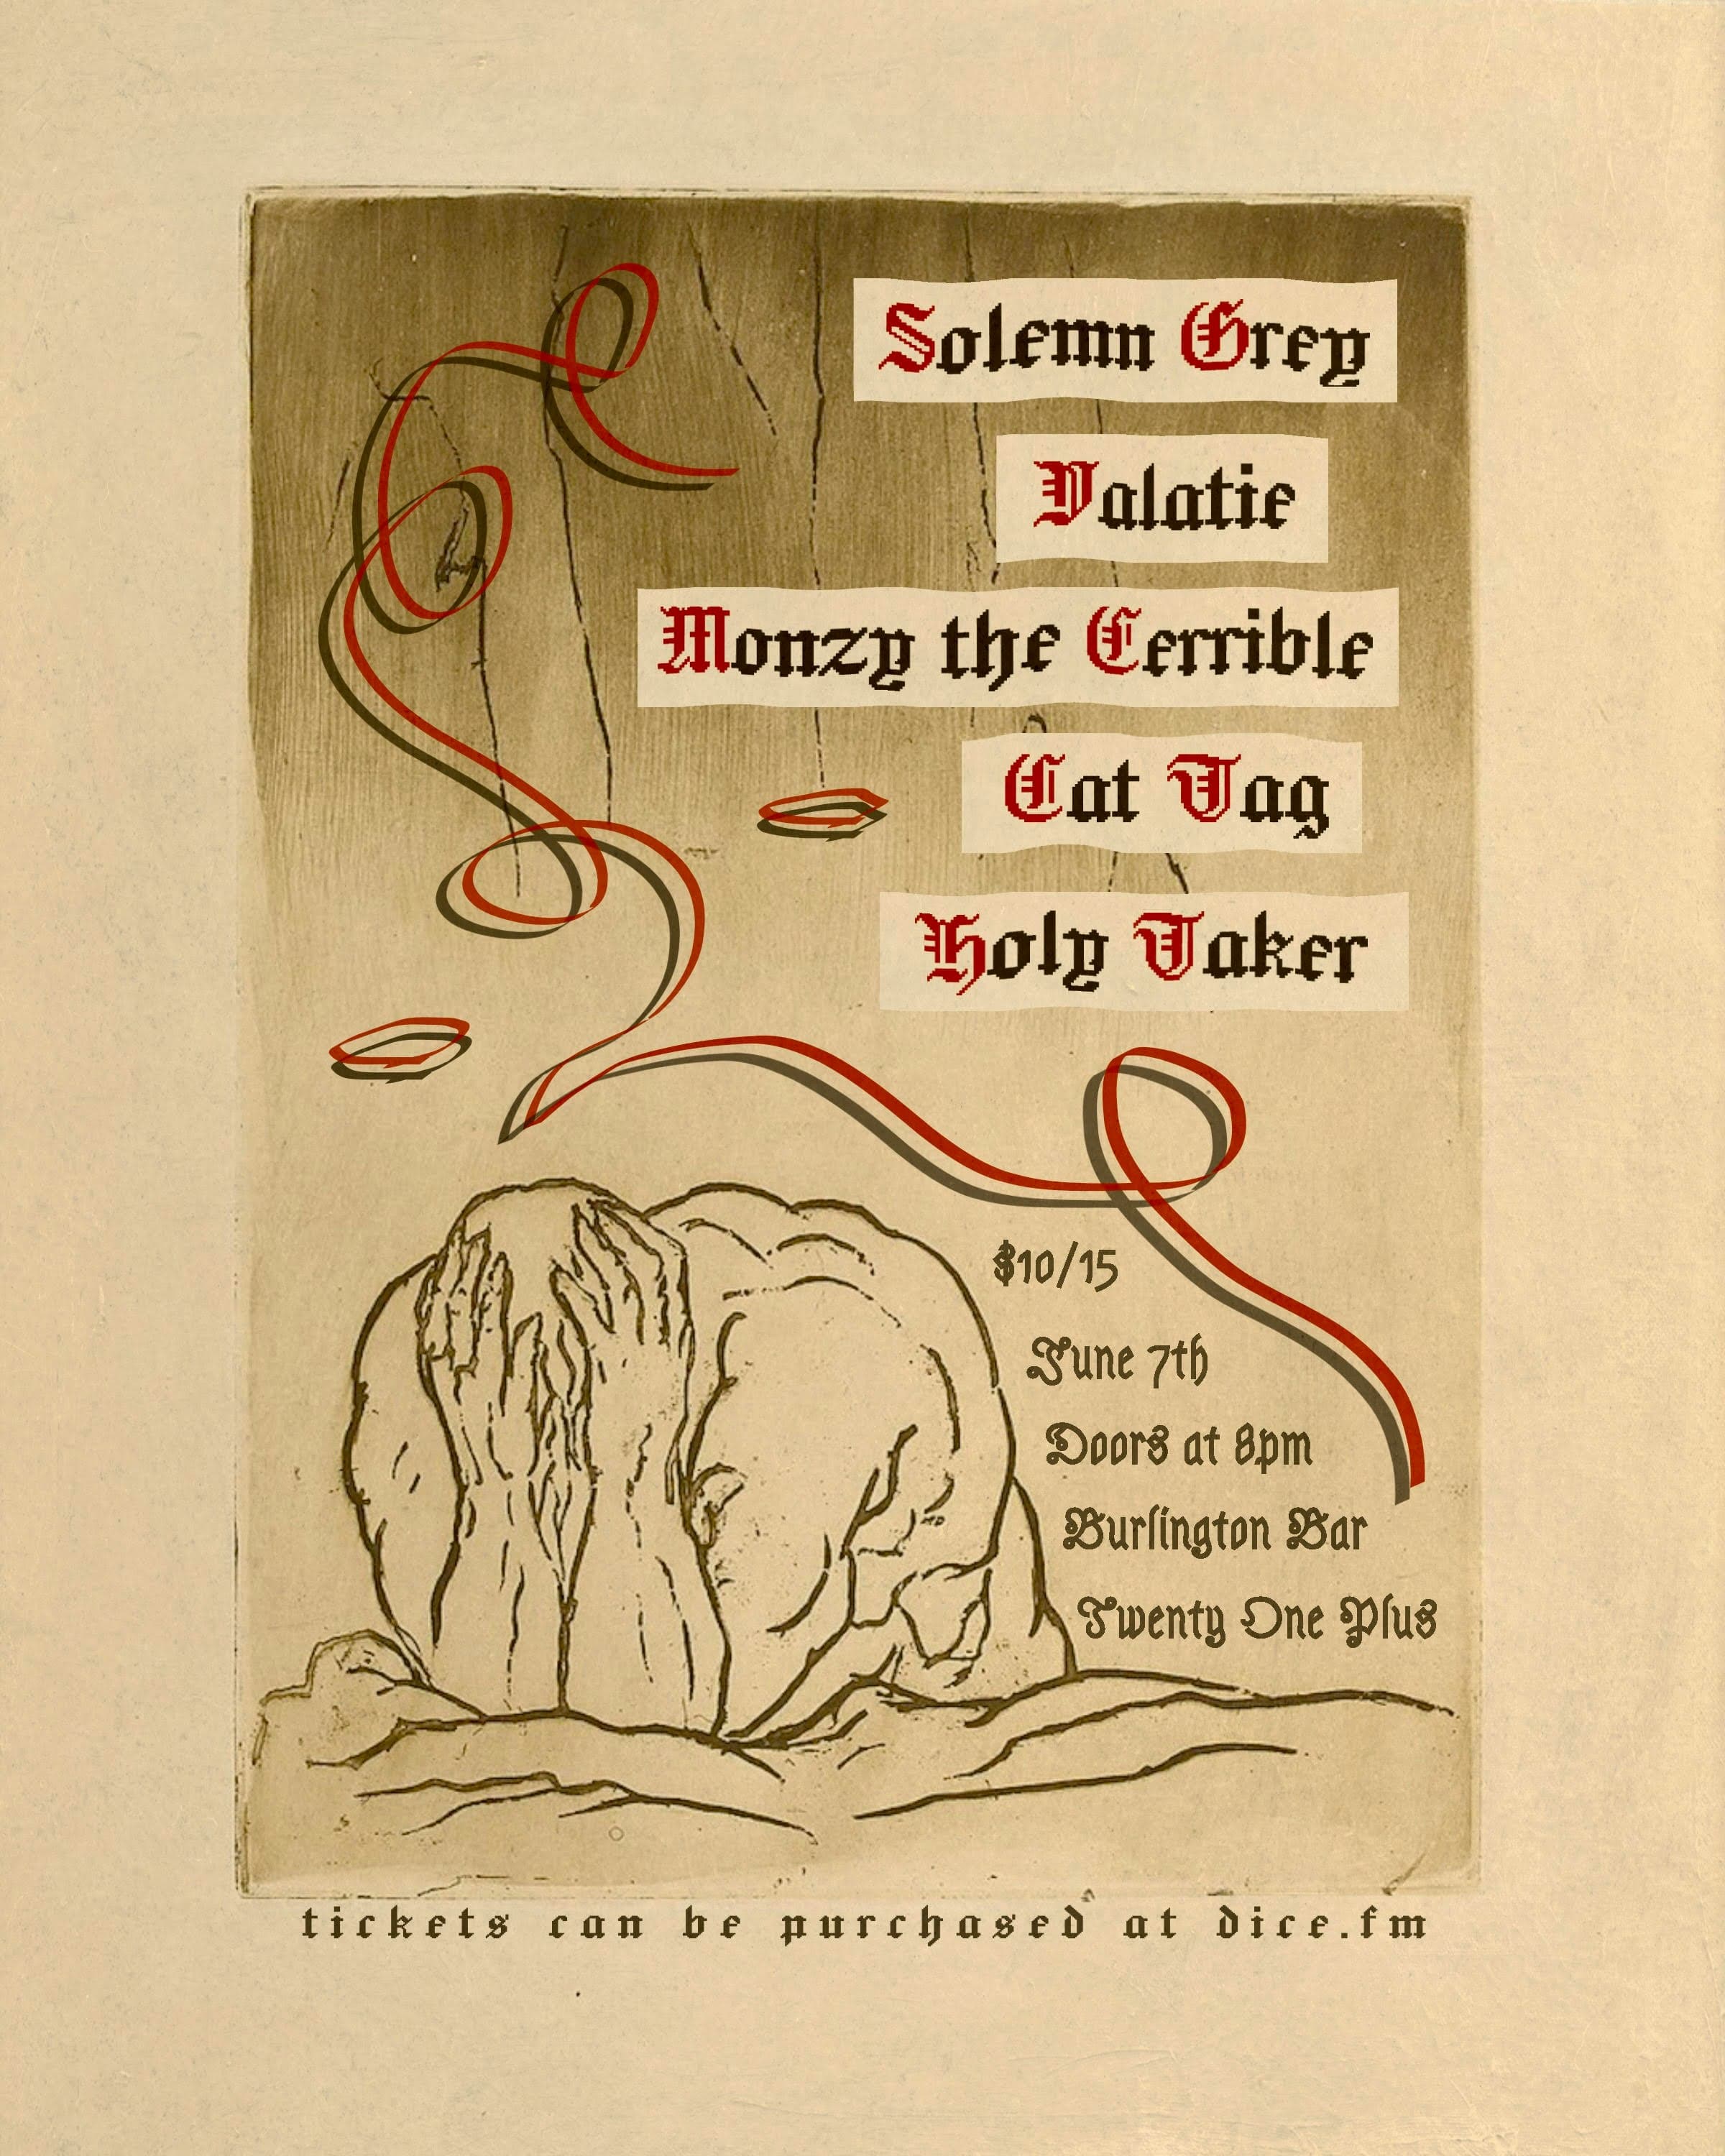 Solemn Grey
Valatie
Monzy the Terrible
Cat Tag
Holy Taker
$10/15
June 7th
Doors at 8pm
Burlington Bar
Twenty One Plus
tickets can be purchased at dice.fm